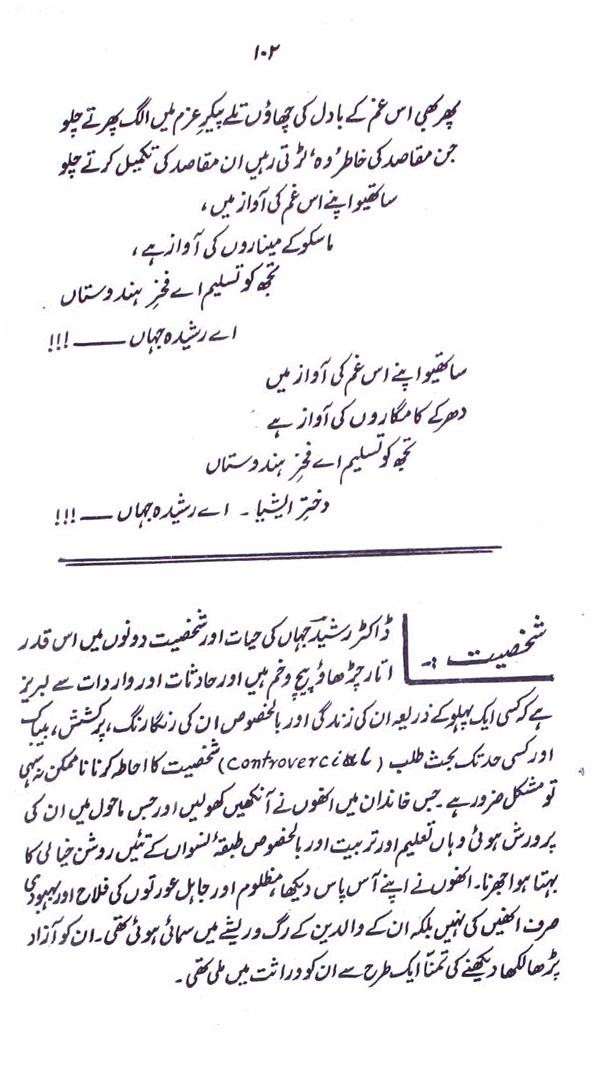 ۱۰۲
پھر بھی اس غم کے بادل کی چھاؤں تلے پیکرِ عزم میں الگ پھرتے چلو
جن مقاصد کی خاطر وہ لڑتی رہیں ان مقاصد کی تکمیل کرتے چلو
ساتھیو اپنے اس غم کی آواز میں،
ماسکو کے میناروں کی آواز ہے،
تجھ کو تسلیم اے فخرِ ہندوستاں
اے رشیدہ جہاں ——— !!!
ساتھیو اپنے اس غم کی آواز میں
دھر کے کامگاروں کی آواز ہے
تجھ کو تسلیم اے فخرِ ہندوستاں
دخترِ ایشیا ۔ اے رشیدہ جہاں —— !!!
شخصیت :۔
ڈاکٹر رشید جہاں کی حیات اور شخصیت دونوں میں اس قدر
اتار چڑھاؤ پیچ وخم ہیں اور حادثات اور واردات سے لبریز
ہے کہ کسی ایک پہلو کے ذریعہ ان کی زندگی اور بالخصوص ان کی رنگارنگ، پرکشش، بیباک
اور کسی حد تک بحث طلب (controvercial) شخصیت کا احاطہ کرنا ناممکن نہ سہی
تو مشکل ضرور ہے۔ جس خاندان میں انھوں نے آنکھیں کھولیں اور جس ماحول میں ان کی
پرورش ہوئی وہاں تعلیم اور تربیت اور بالخصوص طبقۂ نسواں کے تئیں روشن خیالی کا
بہتا ہوا جھرنا۔ انھوں نے اپنے آس پاس دیکھا، مظلوم اور جاہل عورتوں کی فلاح اور بہبودی
صرف انھیں کی نہیں بلکہ ان کے والدین کے رگ و ریشے میں سمائی ہوئی تھی۔ ان کو آزاد
پڑھا لکھا دیکھنے کی تمنّا ایک طرح سے ان کو وراثت میں ملی تھی۔